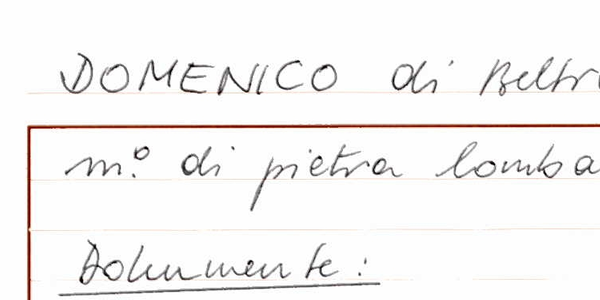 DOMENICO di Beltr
m.º di pietra lomba
Dokumente: